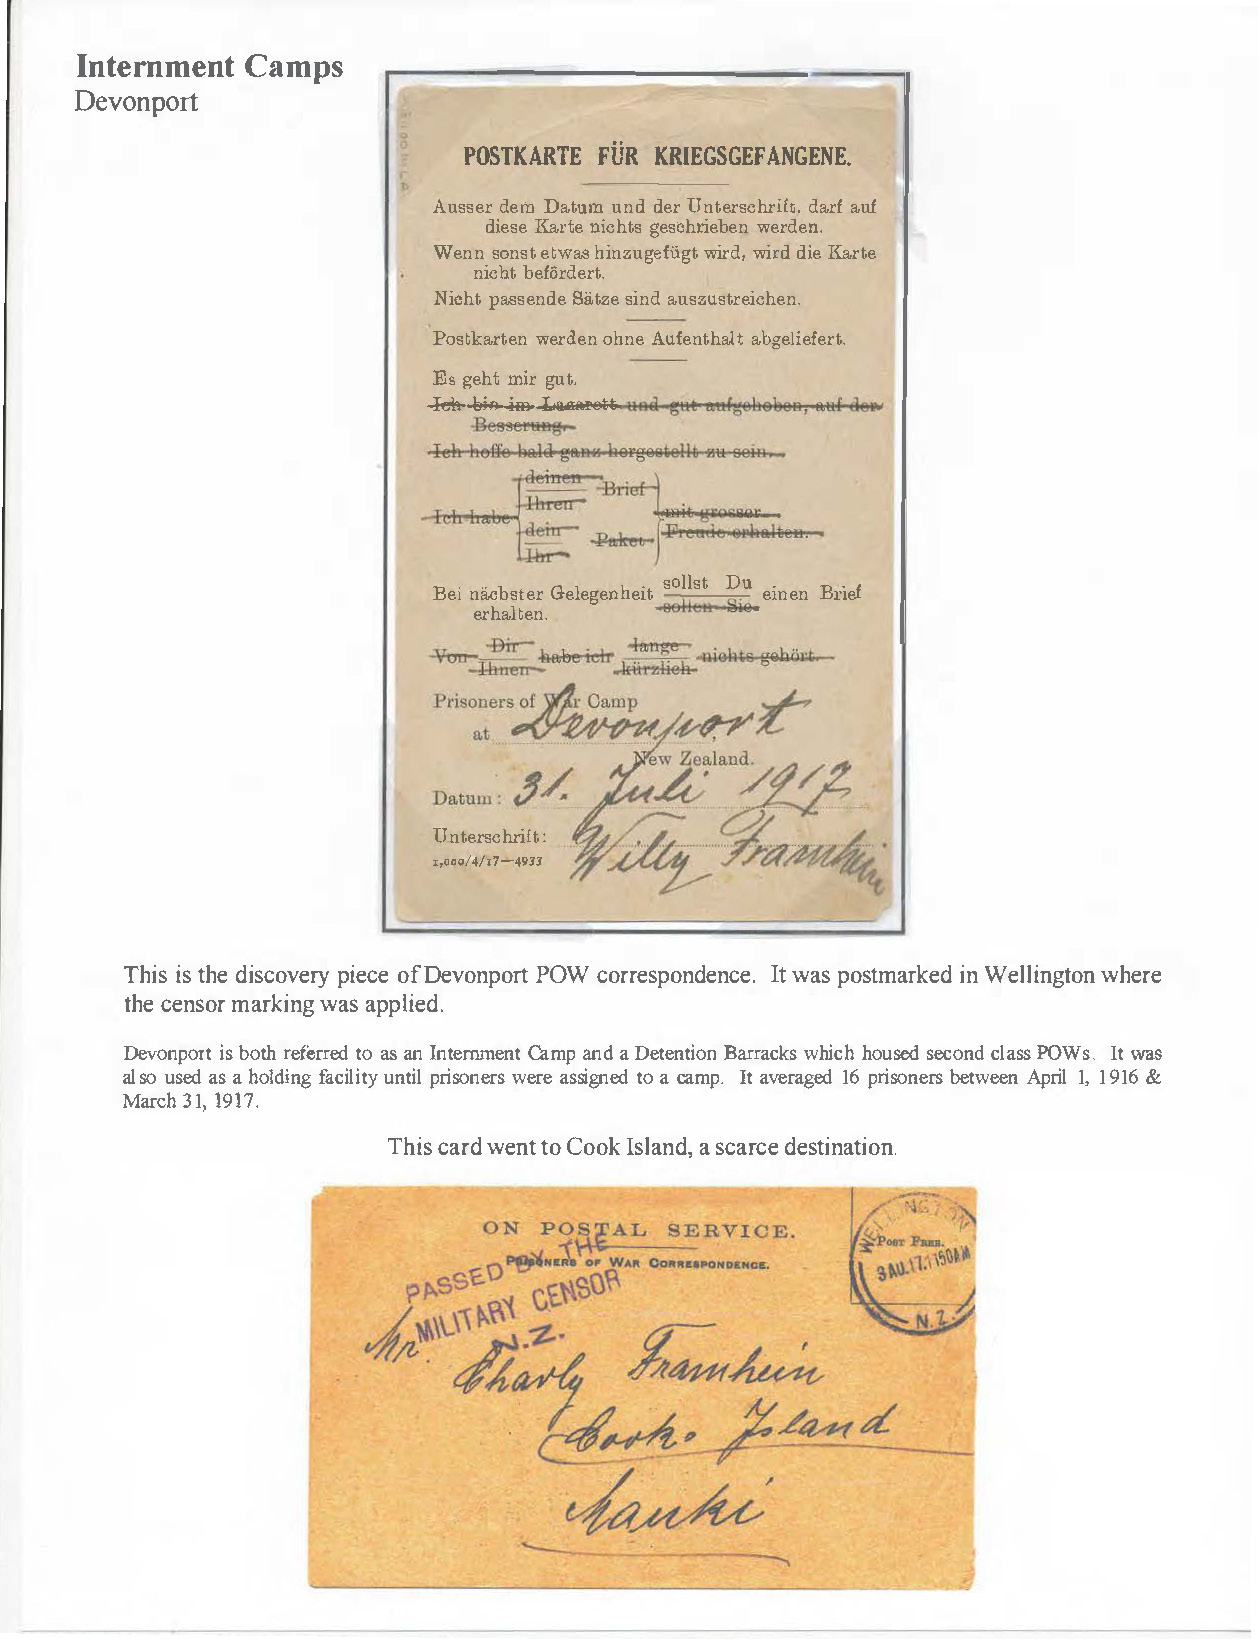 Internment Camps
Devonport
POSTKARTE FÜR KRIEGSGEFANGENE.
Ausser dem Datum und der Unterschrift, darf auf
diese Karte nichts geschrieben werden.
Wenn sonst etwas hinzugefügt wird, wird die Karte
nicht befördert.
Nicht passende Sätze sind auszustreichen.
Postkarten werden ohne Aufenthalt abgeliefert.
Es geht mir gut.
Ich bin im Lazarett und gut aufgehoben, auf der
Besserung.
Ich hoffe bald ganz hergestellt zu sein.
deinen
Ihren
Brief
Ich habe
mit grosser
Freude erhalten.
dein
Ihr
Paket
Bei nächster Gelegenheit sollst Du einen Brief
sollen Sie
erhalten.
Von Dir habe ich lange nichts gehört.
Ihnen kürzlich
Prisoners of War Camp
at Devonport
New Zealand.
Datum: 31. Juli 1917
Unterschrift: Willy Framhein
1,000/4/17—4933
This is the discovery piece of Devonport POW correspondence. It was postmarked in Wellington where
the censor marking was applied.
Devonport is both referred to as an Internment Camp and a Detention Barracks which housed second class POWs. It was
also used as a holding facility until prisoners were assigned to a camp. It averaged 16 prisoners between April 1, 1916 &
March 31, 1917.
This card went to Cook Island, a scarce destination.
ON POSTAL SERVICE.
PRISONERS OF WAR CORRESPONDENCE.
POST FREE.
WELLINGTON
3 AU.17.1150AM
N.Z.
PASSED BY THE
MILITARY CENSOR
N.Z.
Mr. Charly Framhein
Cook. Island
Mauki